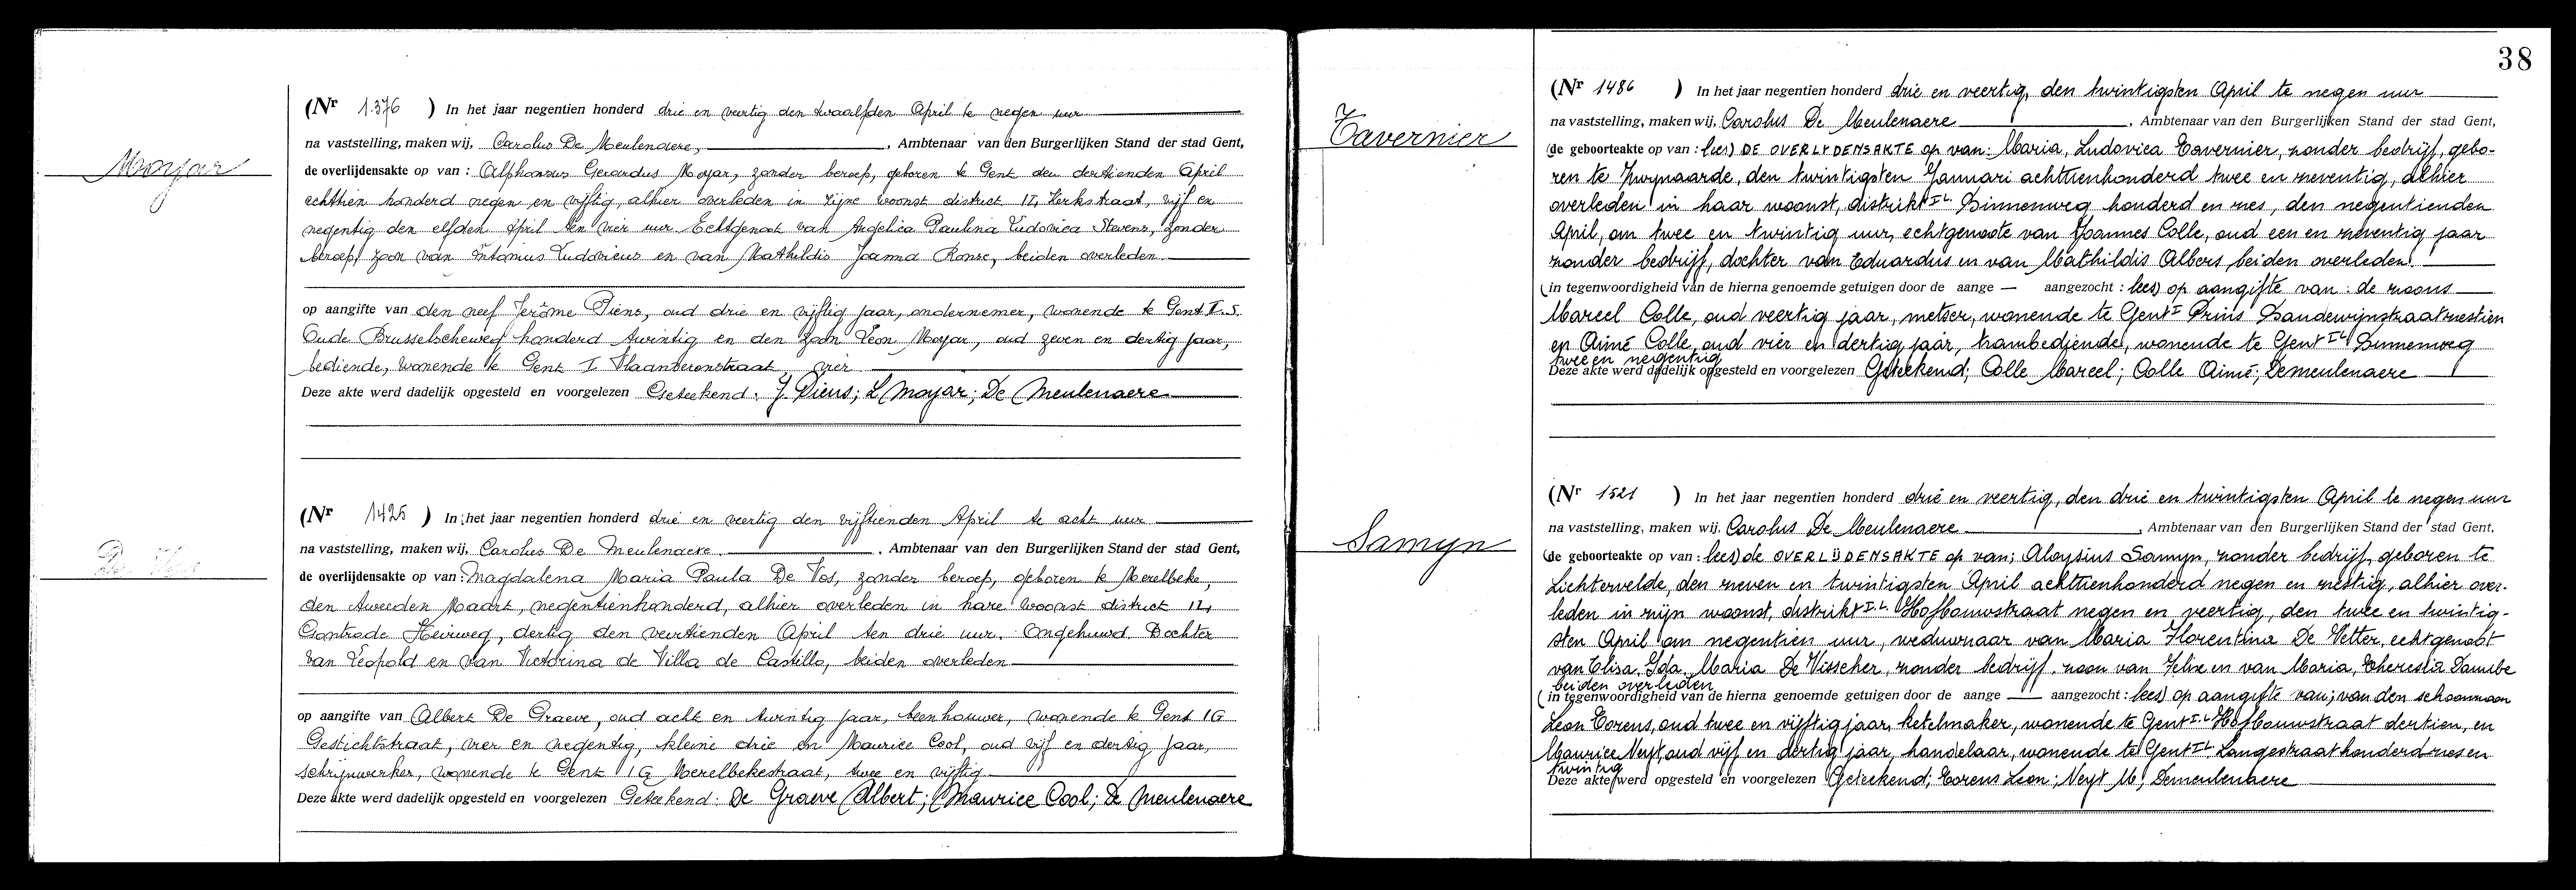 Moyar
(Nr 1.376 ) In het jaar negentien honderd drie en veertig den twaalfden April te negen uur
na vaststelling, maken wij, Carolus De Meulenaere, , Ambtenaar van den Burgerlijken Stand der stad Gent,
de overlijdensakte op van : Alphonsus Gerardus Moyar, zonder beroep, geboren te Gent den dertienden April
achttien honderd negen en vijftig, alhier overleden in zijne woonst district IL Kerkstraat, vijf en
negentig den elfden April ten vier uur Echtgenoot van Angelica Paulina Ludovica Stevens, zonder
beroep, zoon van Antonius Ludovicus en van Mathildis Joanna Ronse, beiden overleden
op aangifte van den neef Jerôme Piens, oud drie en vijftig jaar, ondernemer, wonende te Gent II.S.
Oude Brusselscheweg honderd twintig en den zoon Leon Moyar, oud zeven en dertig jaar,
bediende, wonende te Gent I Vlaanderenstraat, vier
Deze akte werd dadelijk opgesteld en voorgelezen Geteekend: J. Piens; L Moyar; De Meulenaere
De Vos
(Nr 1425 ) In het jaar negentien honderd drie en veertig den vijftienden April te acht uur
na vaststelling, maken wij, Carolus De Meulenaere. , Ambtenaar van den Burgerlijken Stand der stad Gent,
de overlijdensakte op van : Magdalena Maria Paula De Vos, zonder beroep, geboren te Merelbeke,
den tweeden Maart, negentienhonderd, alhier overleden in hare woonst district IL
Gontrode Heirweg, dertig den veertienden April ten drie uur. Ongehuwd. Dochter
van Leopold en van Victorina de Villa de Castillo, beiden overleden
op aangifte van Albert De Graeve, oud acht en twintig jaar, beenhouwer, wonende te Gent IG
Gestichtstraat, vier en negentig, kleine drie en Maurice Cool, oud vijf en dertig jaar,
schrijnwerker, wonende te Gent IG Merelbekestraat, twee en vijftig
Deze akte werd dadelijk opgesteld en voorgelezen Geteekend: De Graeve Albert; Maurice Cool; De Meulenaere
38
Tavernier
(Nr 1486 ) In het jaar negentien honderd drie en veertig, den twintigsten April te negen uur
na vaststelling, maken wij, Carolus De Meulenaere , Ambtenaar van den Burgerlijken Stand der stad Gent,
(de geboorteakte op van : lees) DE OVERLYDENSAKTE op van: Maria, Ludovica Tavernier, zonder bedrijf, gebo-
ren te Zwijnaarde, den twintigsten Januari achttienhonderd twee en zeventig, alhier
overleden in haar woonst, distrikt I.L. Binnenweg honderd en zes, den negentienden
April, om twee en twintig uur, echtgenoote van Joannes Colle, oud een en zeventig jaar
zonder bedrijf, dochter van Eduardus en van Mathildis Albers, beiden overleden.
(in tegenwoordigheid van de hierna genoemde getuigen door de aange — aangezocht : lees) op aangifte van: de zoons
Marcel Colle, oud veertig jaar, metser, wonende te Gent I Prins Boudewijnstraat zestien
en Aimé Colle, oud vier en dertig jaar, trambediende, wonende te Gent IL Binnenweg
twee en negentig
Deze akte werd dadelijk opgesteld en voorgelezen Geteekend; Colle Marcel; Colle Aimé; Demeulenaere
Samyn
(Nr 1521 ) In het jaar negentien honderd drie en veertig, den drie en twintigsten April te negen uur
na vaststelling, maken wij, Carolus De Meulenaere , Ambtenaar van den Burgerlijken Stand der stad Gent,
(de geboorteakte op van : lees) de OVERLIJDENSAKTE op van; Aloysius Samyn, zonder bedrijf, geboren te
Lichtervelde, den zeven en twintigsten April achttienhonderd negen en zestig, alhier over-
leden in zijn woonst, distrikt I.L. Hofbouwstraat negen en veertig, den twee en twintig-
sten April om negentien uur, weduwnaar van Maria Florentina De Vetter, echtgenoot
van Elisa, Ida, Maria De Visscher, zonder bedrijf, zoon van Felix en van Maria, Theresia
beiden overleden
(in tegenwoordigheid van de hierna genoemde getuigen door de aange — aangezocht : lees) op aangifte van; van den schoonzoon
Leon Torens, oud twee en vijftig jaar, ketelmaker, wonende te Gent I.L. Hofbouwstraat dertien, en
Maurice Neyt, oud vijf en dertig jaar, handelaar, wonende te Gent IL. Langestraat honderd zes en
twintig
Deze akte werd opgesteld en voorgelezen Geteekend; Torens Leon; Neyt M; Demeulenaere